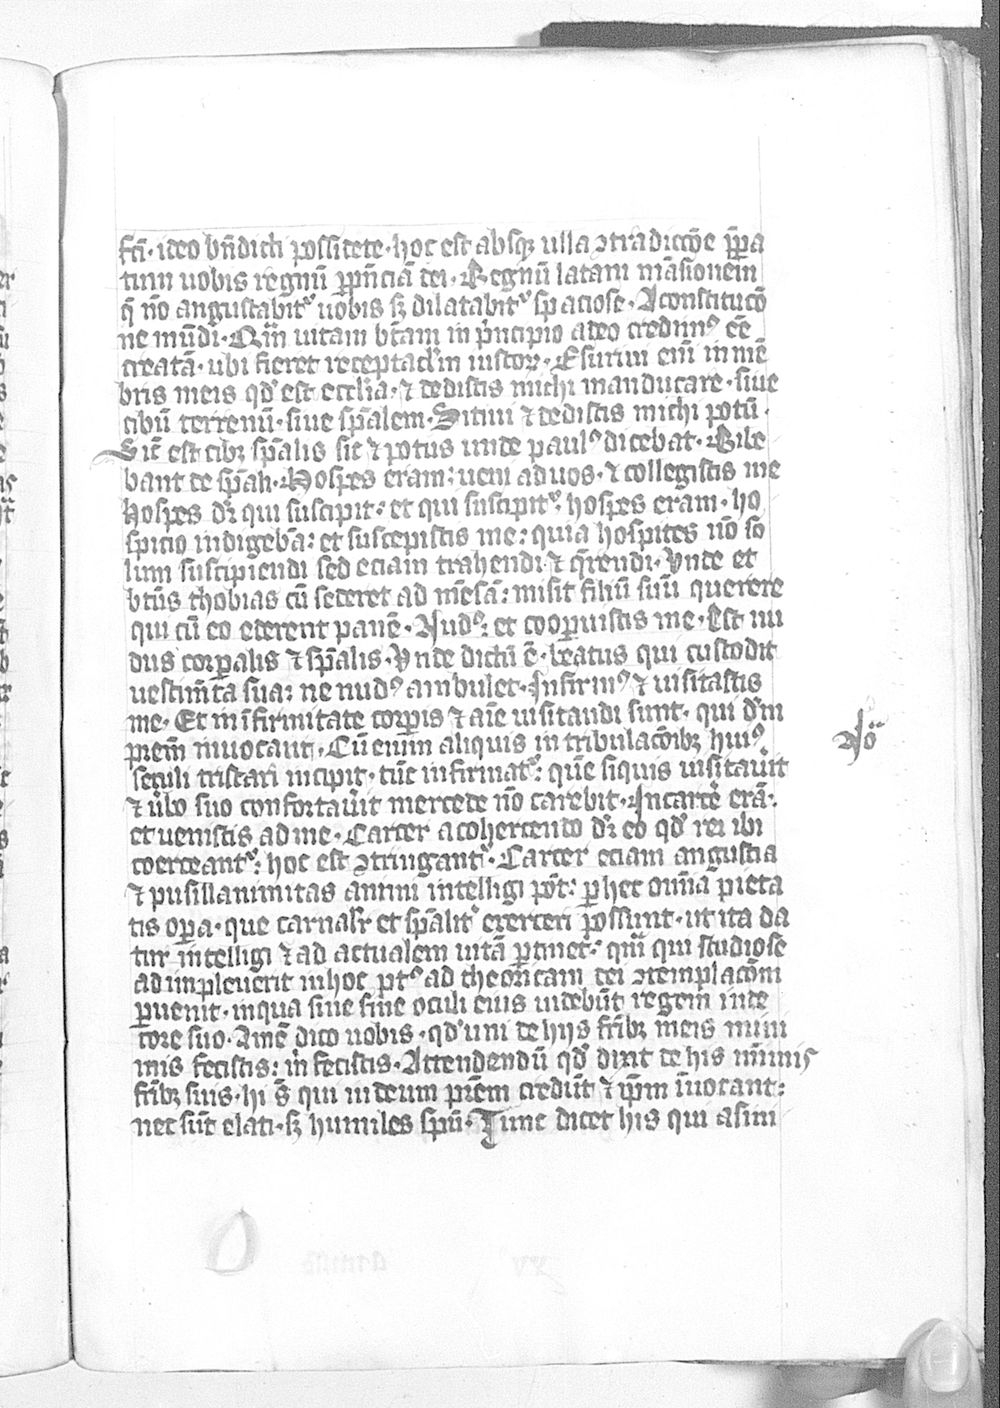 fc̄i · ideo bn̄dicti possidete · hoc est absqꝫ ulla ꝯtradiccōe p̄pa
tum uobis regnū p̄pm̄ciā dei · Regnū latam māsionem
q̄ nō angustabit᷑ uobis sꝫ dilatabit᷑ spaciose · A constitucō
ne mūdi · Qm̄ uitam btām in p̄ncipio adeo credim᷒ eē
creatā · ubi fieret receptaclm̄ iustoꝝ · Esuriui em̄ in mē
bris meis qd̓ est eccl̄ia · ⁊ dedistis michi manducare · siue
cibū terrenū · siue sp̄alem · Sitiui ⁊ dedistis michi potū ·
Sic̄ est cibꝫ sp̄alis sic ⁊ potus unde paul᷒ dicebat · Bibe
bant de sp̄ali · Hospes eram : ueni ad uos · ⁊ collegistis me
Hospes dr̄ qui suscipit : et qui suscipit᷑ : hospes eram · ho
spicio indigebā : et suscepistis me : quia hospites nō so
lum suscipiendi sed eciam trahendi · ⁊ q̄rendi · Vnde et
btūs thobias cū sederet ad mēsā : misit filiū suū querere
qui cū eo ederent panē · Nud᷒ : et cooꝑuistis me · Est nu
dus corꝑalis ⁊ sp̄alis · Vnde dictū ē · beatus qui custodit
uestim̄ta sua : ne nud᷒ ambulet · Infirm᷒ ⁊ uisitastis
me · Et in īfirmitate corꝑis ⁊ aīe uisitandi sunt · qui dn̄m
p̄rem̄ inuocant · Cū enim aliquis in tribulacōibꝫ hui᷒
seculi tristari incipit · tūc infirmat᷑ : quē siquis uisitau̓it
⁊ ūbo suo confortau̓it mercede nō carebit · In carcē erā ·
et uenistis ad me · Carcer a cohercendo dr̄ eo qd̓ rei ibi
coerceant᷑ : hoc est ꝯtringant᷑ · Carcer eciam angustia
⁊ pusillanimitas animi intelligi pōt : ꝑ hec omīa pieta
tis oꝑa · que carnalr̄ et sp̄alit̓ exerceri possunt · ut ita da
tur intelligi ⁊ ad actualem uitā ꝑtinet · qm̄ qui studiose
adimpleuerit in hoc pt᷒ ad theoricam dei ꝯtemplacōm
ꝑuenit · in qua sine fine oculi eius uidebūt regem in de
core suo · Amē dico uobis · qd̓ uni de hijs fr̄ibꝫ meis mini
mis fecistis : m̓ fecistis · Attendendū qd̓ dixit de his mīmis
fr̄ibꝫ suis · hi s̄ qui in deum pr̄em credūt ⁊ ip̄m īuocant :
nec sūt elati · sꝫ humiles spū · Tunc dicet his qui a sini
Nō